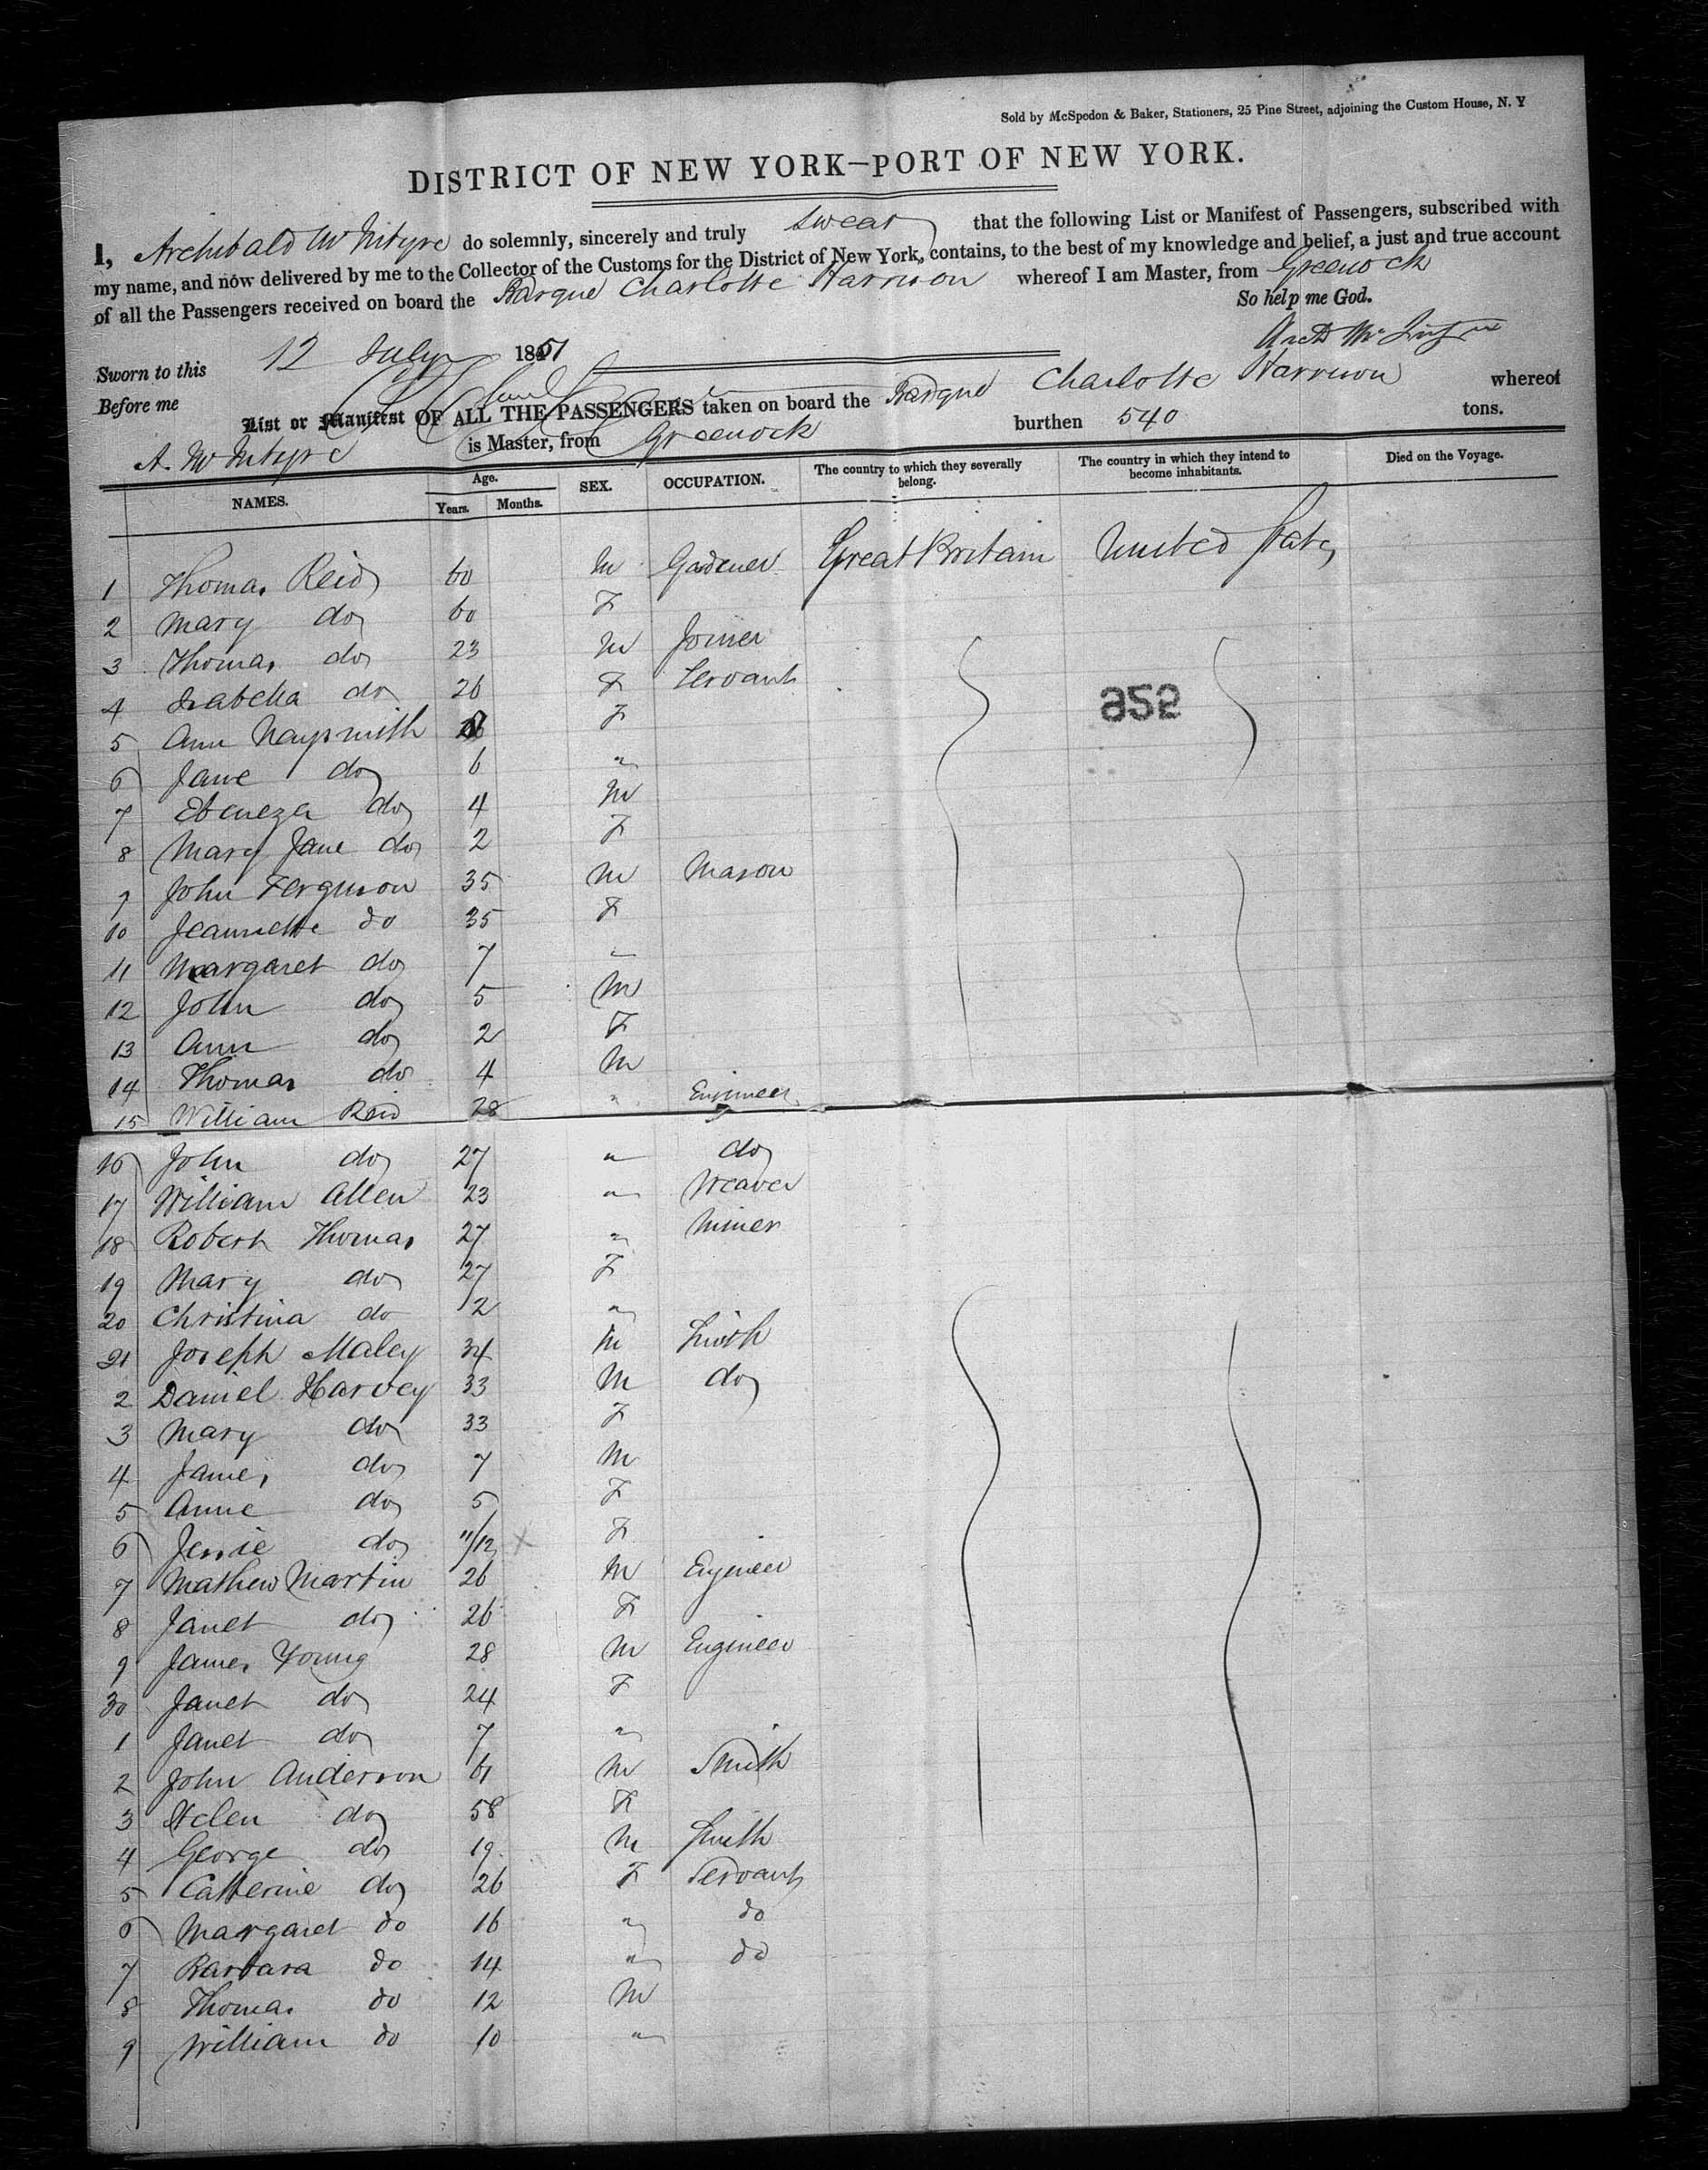 Sold by McSpedon & Baker, Stationers, 25 Pine Street, adjoining the Custom House, N. Y
DISTRICT OF NEW YORK—PORT OF NEW YORK.
I, Archibald McIntyre do solemnly, sincerely and truly swear that the following List or Manifest of Passengers, subscribed with
my name, and now delivered by me to the Collector of the Customs for the District of New York, contains, to the best of my knowledge and belief, a just and true account
of all the Passengers received on board the Barque Charlotte Harrison whereof I am Master, from Greenock
So help me God.
Archd McIntyre
Sworn to this 12 July 1851
Before me
List or Manifest OF ALL THE PASSENGERS taken on board the Barque Charlotte Harrison whereof
A. McIntyre is Master, from Greenock burthen 540 tons.
NAMES. Age. Years. Months. SEX. OCCUPATION. The country to which they severally belong. The country in which they intend to become inhabitants. Died on the Voyage.
1 Thomas Reid 60 M Gardener Great Britain United States
2 Mary do 60 F
3 Thomas do 23 M Joiner
4 Isabella do 26 F Servant
252
5 Ann Naysmith F
6 Jane do 6 "
7 Ebenezer do 4 M
8 Mary Jane do 2 F
9 John Ferguson 35 M Mason
10 Jeannette do 35 F
11 Margaret do 7 "
12 John do 5 M
13 Ann do 2 F
14 Thomas do 4 M
15 William Reid 28 " Engineer
16 John do 27 " do
17 William Allen 23 " Weaver
18 Robert Thomas 27 " Miner
19 Mary do 27 F
20 Christina do 2 "
21 Joseph Maley 34 M Smith
2 Daniel Harvey 33 M do
3 Mary do 33 F
4 James do 7 M
5 Anne do 5 F
6 Jessie do 11/12 F
7 Mathew Martin 26 M Engineer
8 Janet do 26 F
9 James Young 28 M Engineer
30 Janet do 24 F
1 Janet do 7 "
2 John Anderson 61 M Smith
3 Helen do 58 F
4 George do 19 M Smith
5 Catherine do 26 F Servant
6 Margaret do 16 " do
7 Barbara do 14 " do
8 Thomas do 12 M
9 William do 10 "